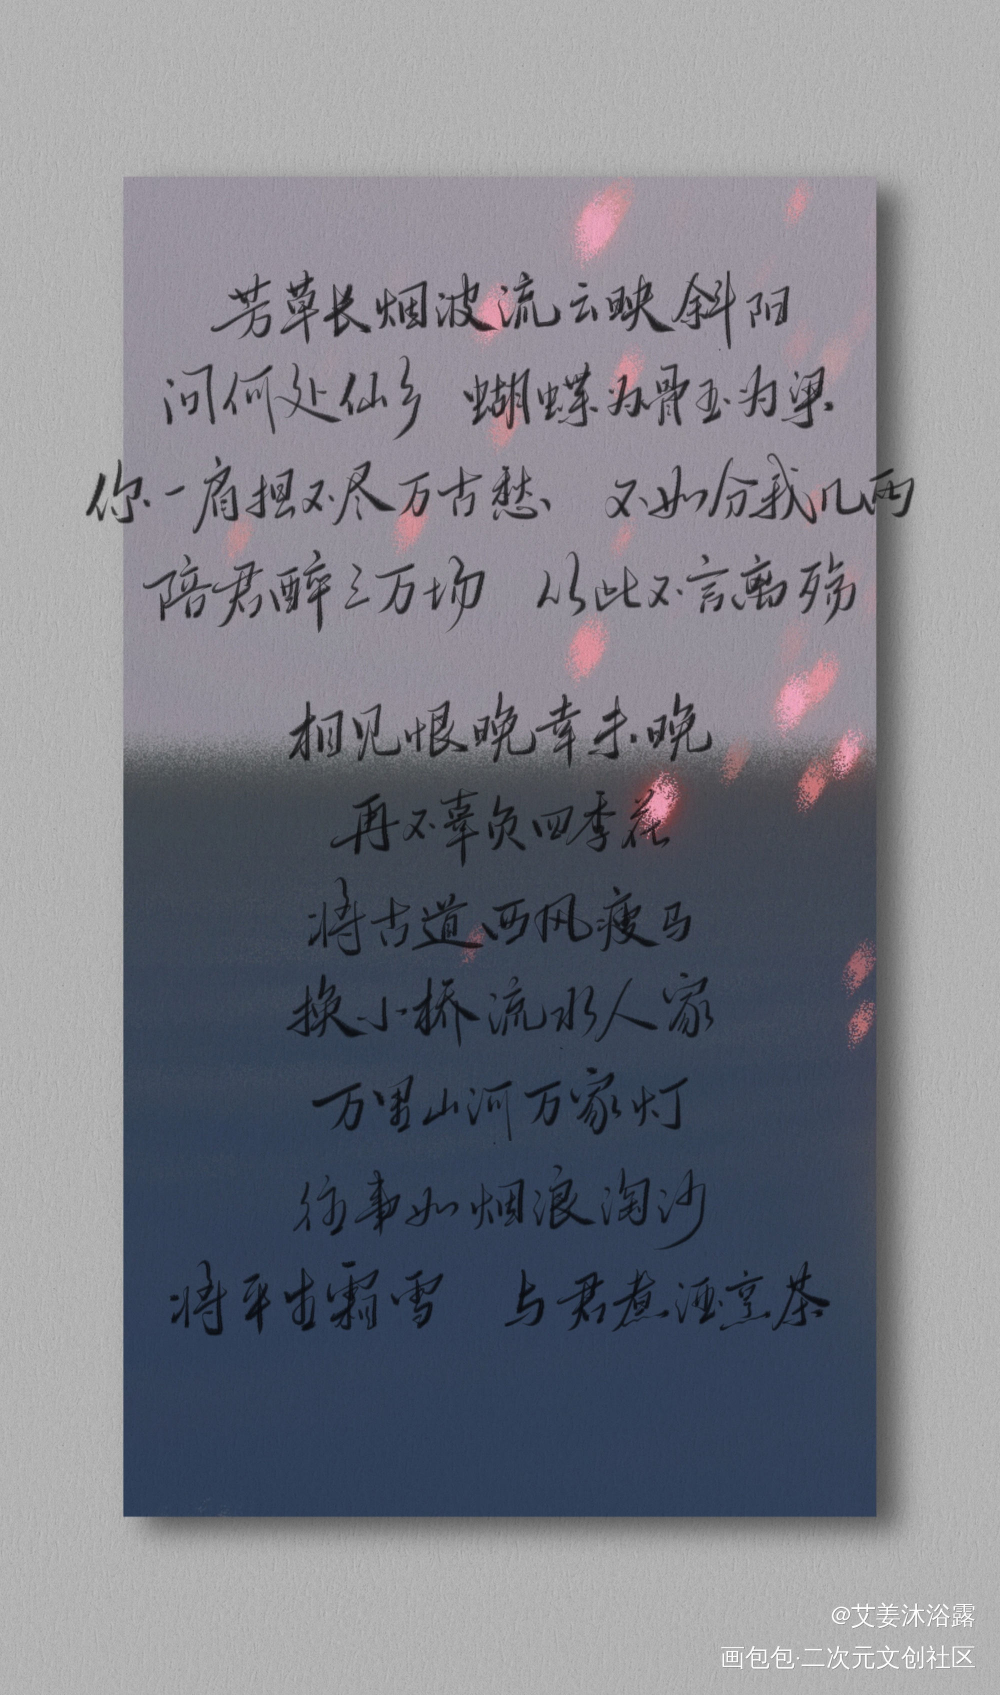 芳草长烟波流云映斜阳
问何处仙乡 蝴蝶为骨玉为梁
你一肩担不尽万古愁 不如分我几两
陪君醉三万场 从此不言离殇
相见恨晚幸未晚
再不辜负四季花
将古道西风瘦马
换小桥流水人家
万里山河万家灯
往事如烟浪淘沙
将平生霜雪 与君煮酒烹茶
@艾姜沐浴露
画包包·二次元文创社区